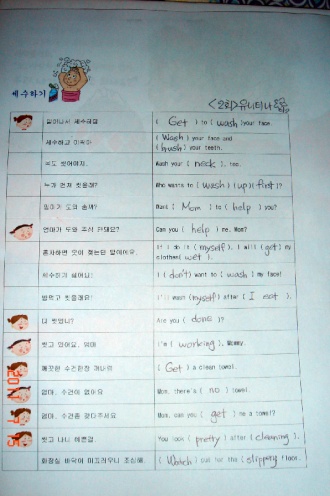 세수하기
<2회>유니티나
일어나서 세수해라
( Get ) to ( wash ) your face.
세수하고 이 닦아
( Wash ) your face and ( brush ) your teeth.
목도 씻어야지.
Wash your ( neck ), too.
누가 먼저 씻을래?
Who wants to ( wash ) ( up ) ( first )?
엄마가 도와 줄까?
Want ( Mom ) to ( help ) you?
엄마가 도와 주실래요?
Can you ( help ) me, Mom?
혼자하면 옷이 젖는단 말이에요.
If I do it ( myself ), I will ( get ) my clothes ( wet ).
세수하기 싫어요!
I ( don't ) want to ( wash ) my face!
밥먹고 씻을래요!
I'll wash ( myself ) after ( I eat ).
다 씻었니?
Are you ( done )?
씻고 있어요, 엄마
I'm ( working ), Mommy.
깨끗한 수건으로
( Get ) a clean towel.
엄마, 수건이 없어요
Mom, there's ( no ) towel.
엄마, 수건좀 갖다주세요
Mom, can you ( get ) me a towel?
씻고 나니 예쁘네.
You look ( pretty ) after ( cleaning ).
화장실 바닥이 미끄러우니 조심해.
( Watch ) out for the ( slippery ) floor.